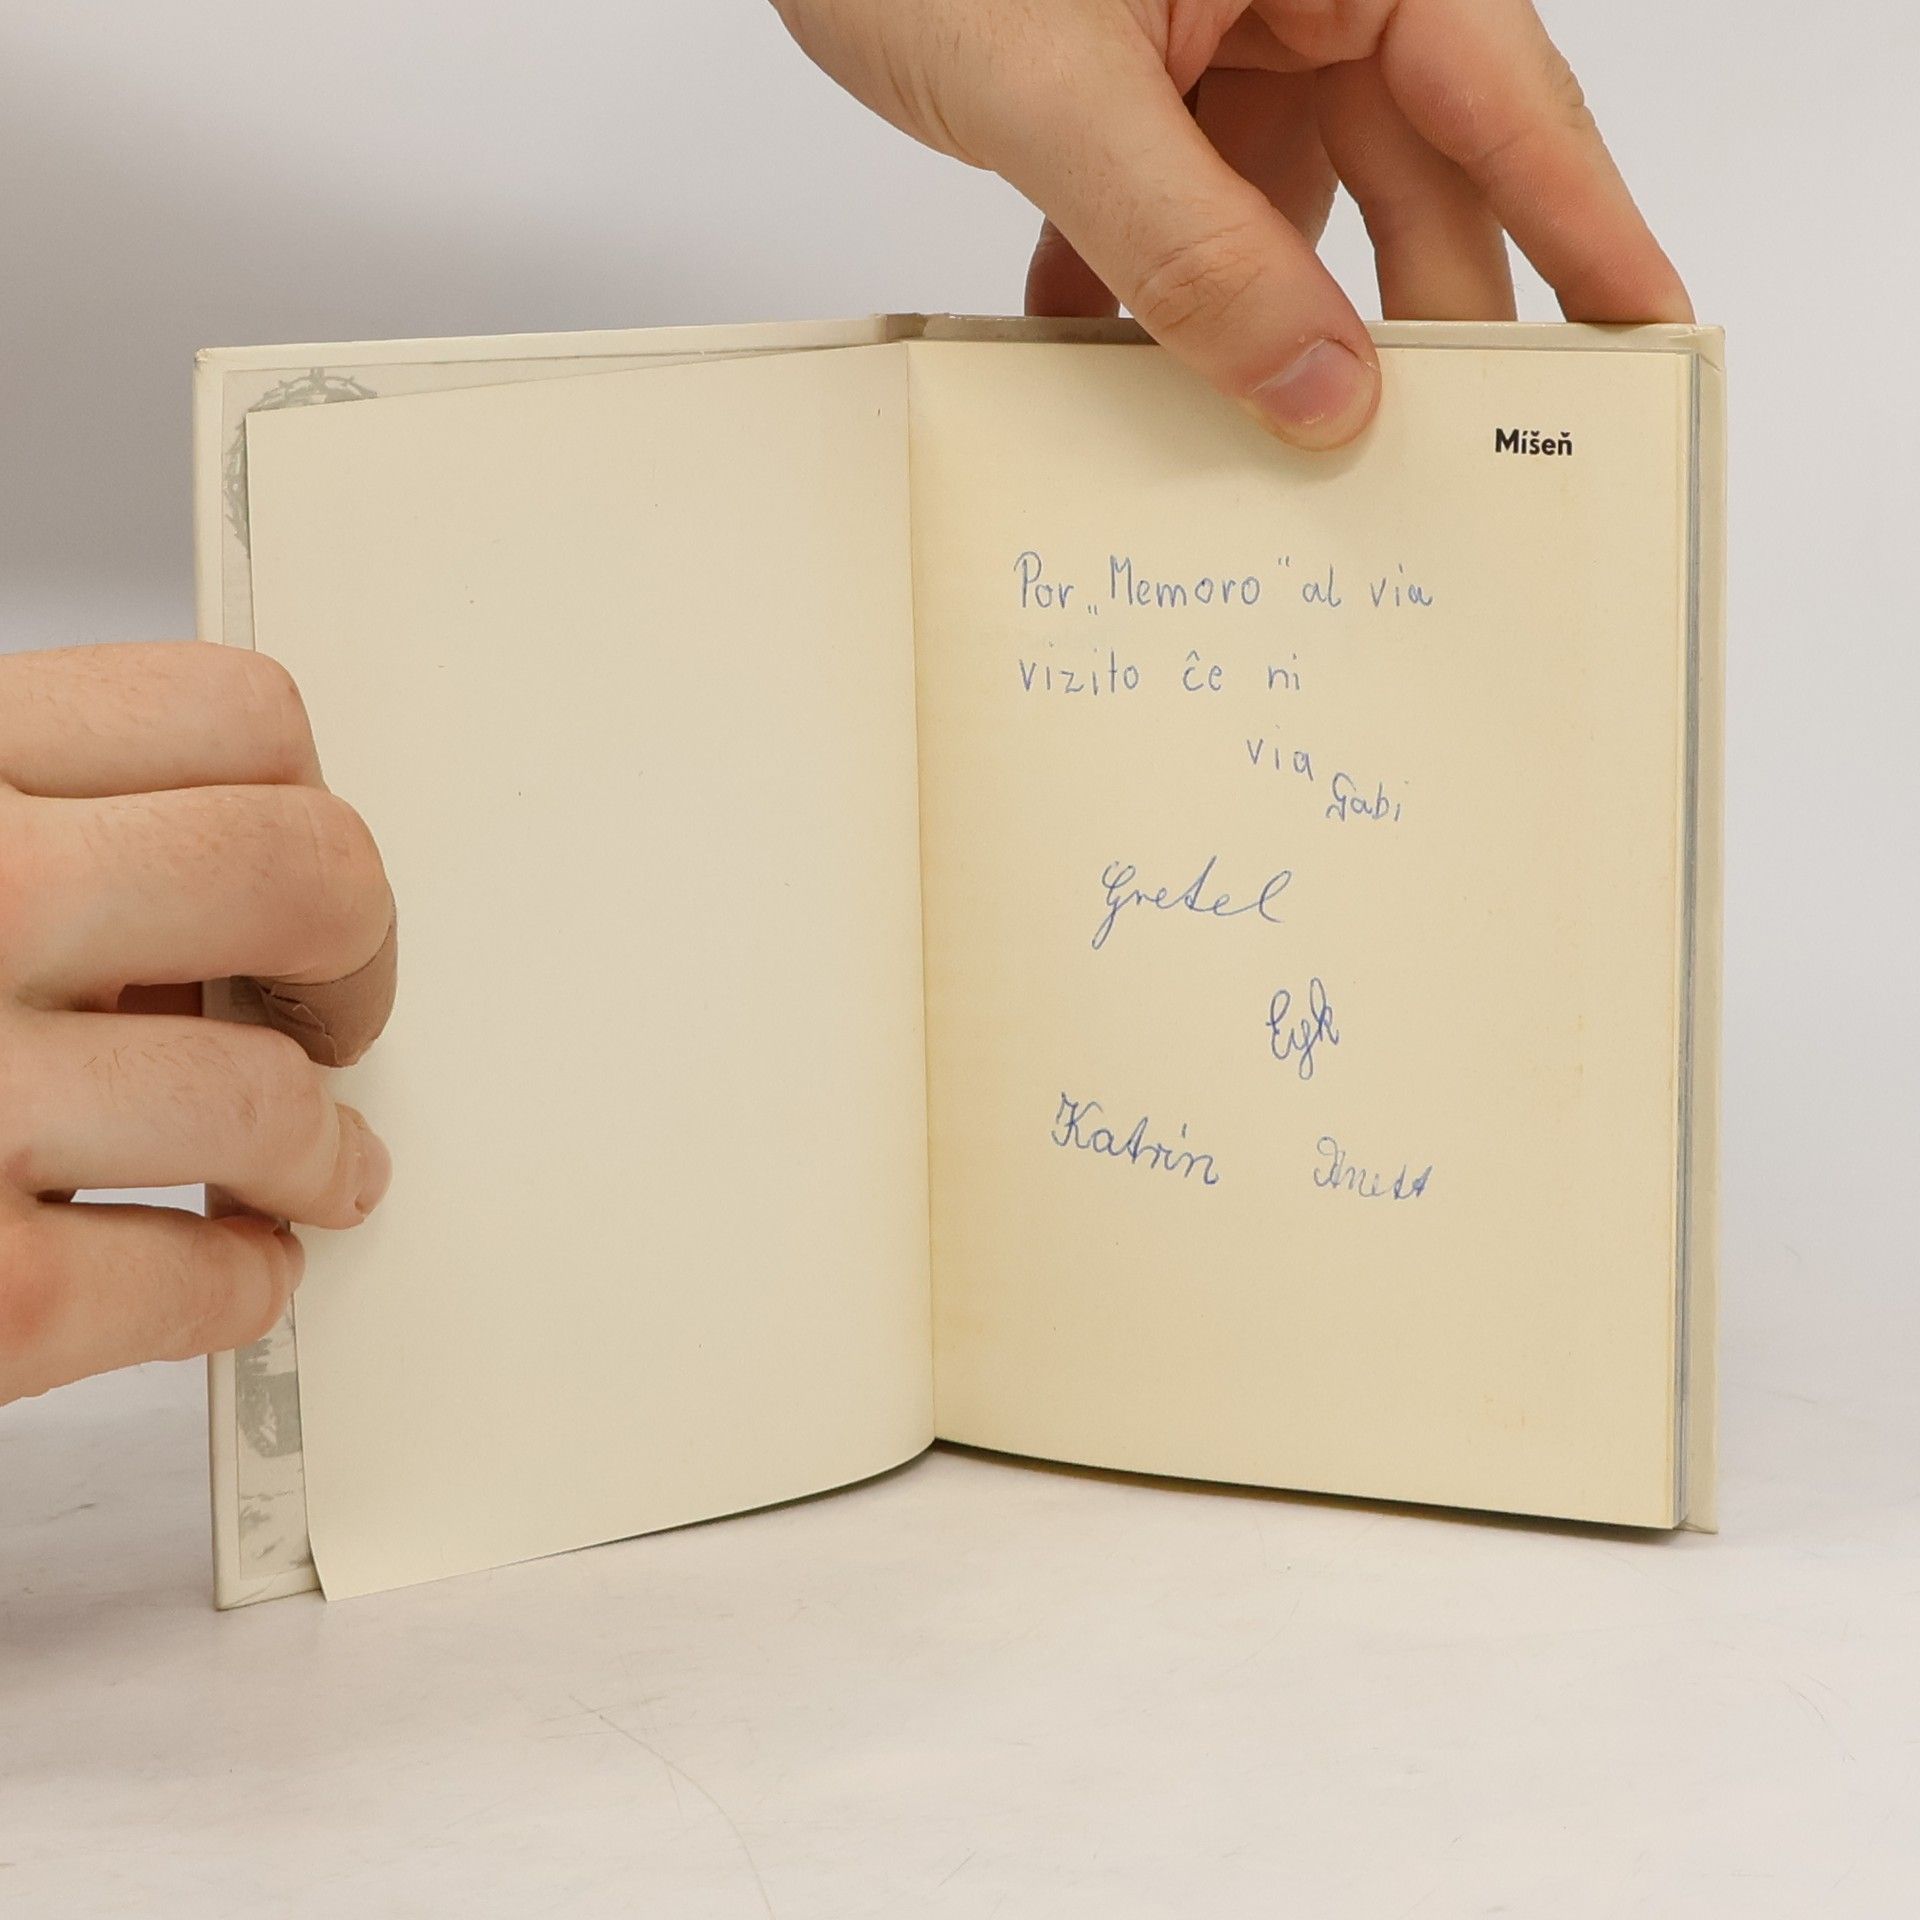 Míšeň
Por „Memoro" al via
vizito ĉe ni
via
Gabi
Gretel
Eyk
Katrin Anett